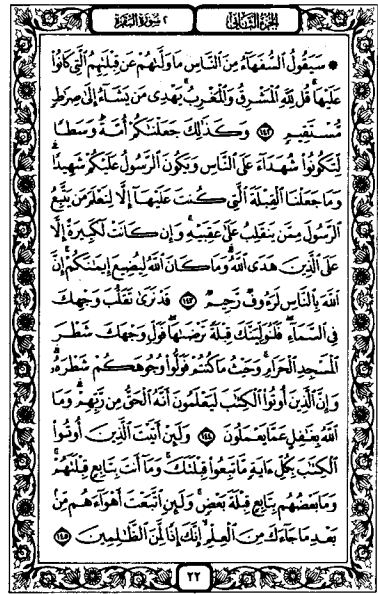 الجزء الثاني
٢ سورة البقرة
۞ سَيَقُولُ السُّفَهَاءُ مِنَ النَّاسِ مَا وَلَّىٰهُمْ عَن قِبْلَتِهِمُ الَّتِي كَانُوا
عَلَيْهَا ۚ قُل لِّلَّهِ الْمَشْرِقُ وَالْمَغْرِبُ ۚ يَهْدِي مَن يَشَاءُ إِلَىٰ صِرَٰطٍ
مُّسْتَقِيمٍ ﴿١٤٢﴾ وَكَذَٰلِكَ جَعَلْنَٰكُمْ أُمَّةً وَسَطًا
لِّتَكُونُوا شُهَدَاءَ عَلَى النَّاسِ وَيَكُونَ الرَّسُولُ عَلَيْكُمْ شَهِيدًا ۗ
وَمَا جَعَلْنَا الْقِبْلَةَ الَّتِي كُنتَ عَلَيْهَا إِلَّا لِنَعْلَمَ مَن يَتَّبِعُ
الرَّسُولَ مِمَّن يَنقَلِبُ عَلَىٰ عَقِبَيْهِ ۚ وَإِن كَانَتْ لَكَبِيرَةً إِلَّا
عَلَى الَّذِينَ هَدَى اللَّهُ ۗ وَمَا كَانَ اللَّهُ لِيُضِيعَ إِيمَٰنَكُمْ ۚ إِنَّ
اللَّهَ بِالنَّاسِ لَرَءُوفٌ رَّحِيمٌ ﴿١٤٣﴾ قَدْ نَرَىٰ تَقَلُّبَ وَجْهِكَ
فِي السَّمَاءِ ۖ فَلَنُوَلِّيَنَّكَ قِبْلَةً تَرْضَىٰهَا ۚ فَوَلِّ وَجْهَكَ شَطْرَ
الْمَسْجِدِ الْحَرَامِ ۚ وَحَيْثُ مَا كُنتُمْ فَوَلُّوا وُجُوهَكُمْ شَطْرَهُ ۗ
وَإِنَّ الَّذِينَ أُوتُوا الْكِتَٰبَ لَيَعْلَمُونَ أَنَّهُ الْحَقُّ مِن رَّبِّهِمْ ۗ وَمَا
اللَّهُ بِغَٰفِلٍ عَمَّا يَعْمَلُونَ ﴿١٤٤﴾ وَلَئِنْ أَتَيْتَ الَّذِينَ أُوتُوا
الْكِتَٰبَ بِكُلِّ ءَايَةٍ مَّا تَبِعُوا قِبْلَتَكَ ۚ وَمَا أَنتَ بِتَابِعٍ قِبْلَتَهُمْ ۚ
وَمَا بَعْضُهُم بِتَابِعٍ قِبْلَةَ بَعْضٍ ۚ وَلَئِنِ اتَّبَعْتَ أَهْوَاءَهُم مِّن
بَعْدِ مَا جَاءَكَ مِنَ الْعِلْمِ ۙ إِنَّكَ إِذًا لَّمِنَ الظَّٰلِمِينَ ﴿١٤٥﴾
٢٢